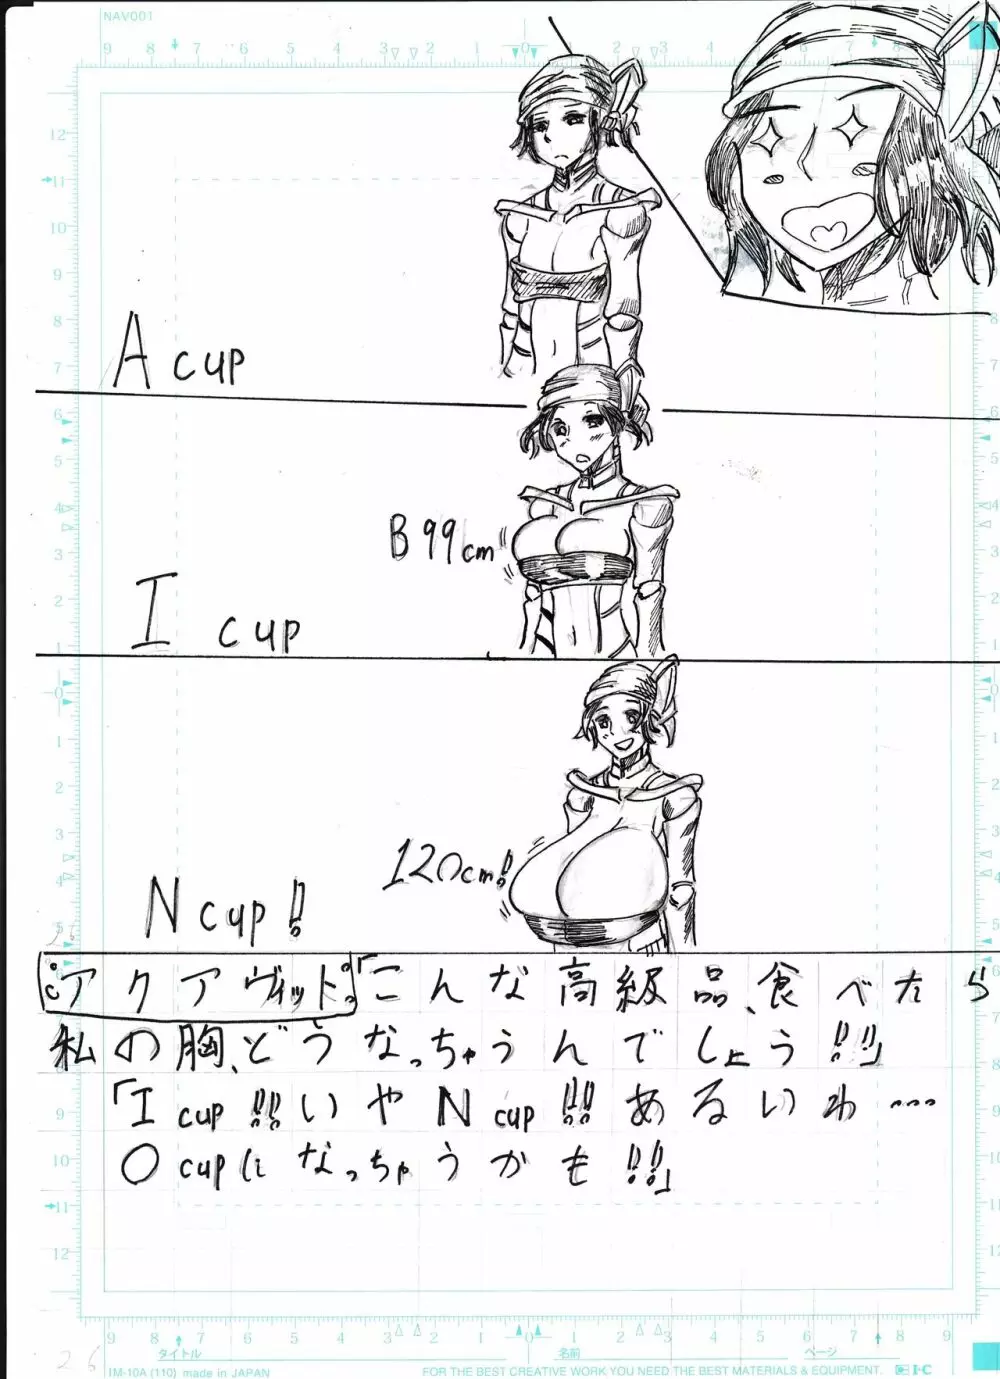 NAV001
A cup
B 99cm
I cup
120cm!!
N cup!!
アクアヴィット「こんな高級品、食べたら
私の胸、どうなっちゃうんでしょう!!!」
「I cup!!!いやN cup!!!あるいわ…
O cupになっちゃうかも!!!」
26
タイトル
名前
ページ
IM-10A (110) made in JAPAN
FOR THE BEST CREATIVE WORK YOU NEED THE BEST MATERIALS & EQUIPMENT.
I·C